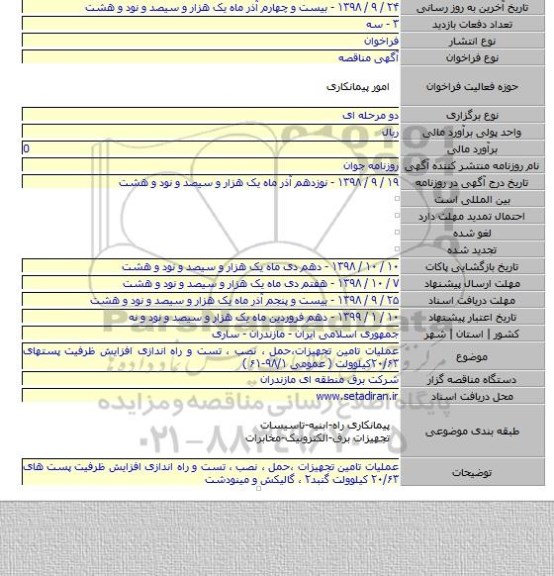 تاریخ آخرین به روز رسانی ۲۴ / ۹ / ۱۳۹۸ - بیست و چهارم آذر ماه یک هزار و سیصد و نود و هشت
تعداد دفعات بازدید ۳ - سه
نوع انتشار فراخوان
نوع فراخوان آگهی مناقصه
حوزه فعالیت فراخوان امور پیمانکاری
نوع برگزاری دو مرحله ای
واحد پولی برآورد مالی ریال
برآورد مالی 0
نام روزنامه منتشر کننده آگهی روزنامه جوان
تاریخ درج آگهی در روزنامه ۱۹ / ۹ / ۱۳۹۸ - نوزدهم آذر ماه یک هزار و سیصد و نود و هشت
بین المللی است
احتمال تمدید مهلت دارد
لغو شده
تجدید شده
تاریخ بازگشایی پاکات ۱۰ / ۱۰ / ۱۳۹۸ - دهم دی ماه یک هزار و سیصد و نود و هشت
مهلت ارسال پیشنهاد ۷ / ۱۰ / ۱۳۹۸ - هفتم دی ماه یک هزار و سیصد و نود و هشت
مهلت دریافت اسناد ۲۵ / ۹ / ۱۳۹۸ - بیست و پنجم آذر ماه یک هزار و سیصد و نود و هشت
تاریخ اعتبار پیشنهاد ۱۰ / ۱ / ۱۳۹۹ - دهم فروردین ماه یک هزار و سیصد و نود و نه
کشور | استان | شهر جمهوری اسلامی ایران - مازندران - ساری
موضوع عملیات تامین تجهیزات،حمل ، نصب ، تست و راه اندازی افزایش ظرفیت پستهای
۲۰/۶۳کیلوولت ( عمومی ۹۸/۱-۶۱ )
دستگاه مناقصه گزار شرکت برق منطقه ای مازندران
محل دریافت اسناد www.setadiran.ir
طبقه بندی موضوعی پیمانکاری راه-ابنیه-تاسیسات
تجهیزات برق-الکترونیک-مخابرات
توضیحات عملیات تامین تجهیزات ،حمل ، نصب ، تست و راه اندازی افزایش ظرفیت پست های
۲۰/۶۳ کیلوولت گنبد۲ ، گالیکش و مینودشت
پایگاه اطلاع رسانی مناقصه و مزایده